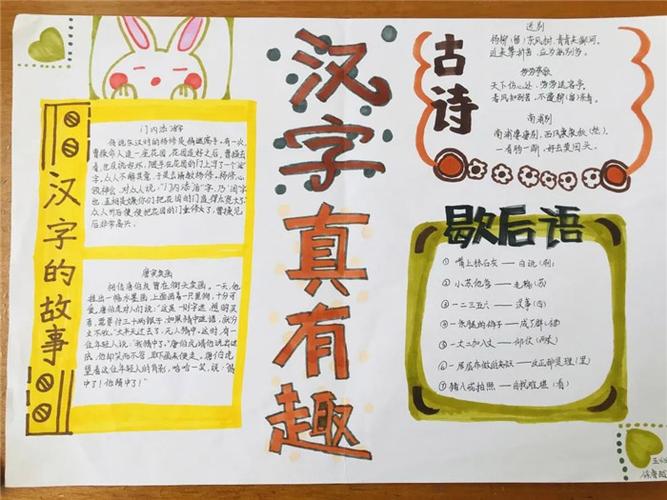 汉字真有趣
汉字的故事
门内添活字
传说东汉时的杨修是猜谜高手。有一次,
曹操命人造一座花园。花园造好之后,曹操去
看,也没说好坏,随手在花园的门上写了一个“活”
字。众人不解其意,于是去请教杨修,杨修心
领神会,对众人说:“门内添‘活’字,乃‘阔’字
也,丞相是嫌你们把花园的门造得太宽大了。”
便把花园的门重修了,曹操见
后非常高兴。
唐寅卖画
相传唐伯虎曾在街头卖画。一天,他
挂出一幅水墨画,上面画着一只黑狗,十分可
爱。唐伯虎对人们说:“这是一则字迷,想购买
者,需要付三十两银子,如果猜中谜语,就分
文不收。”大半天过去了,无人猜中。这时,有一
位年轻人说“我猜中了。”唐伯虎请他说出谜
底,他却笑而不答,取下画来便走。唐伯虎
望着这位年轻人的背影,哈哈一笑,说:“猜
中了!他猜中了!”
古诗
送别
杨柳(留)东风树,青青夹御河。
近来攀折苦,应为别离多。
劳劳亭
天下伤心处,劳劳送客亭。
春风知别苦,不遣柳(留)条青。
南浦别
南浦凄凄别,西风袅袅秋(愁)。
一看肠一断,好去莫回头。
歇后语
① 嘴上抹石灰——白说(刷)
② 小苏他爹——老
③ 一二三五六——没事(四)
④ 一张腿的裤子——成了群(裙)
⑤ 一丈二加八丈——仰仗(两丈)
⑥ 反正都是理(里)
⑦ 猪八戒拍照——自找难堪(看)